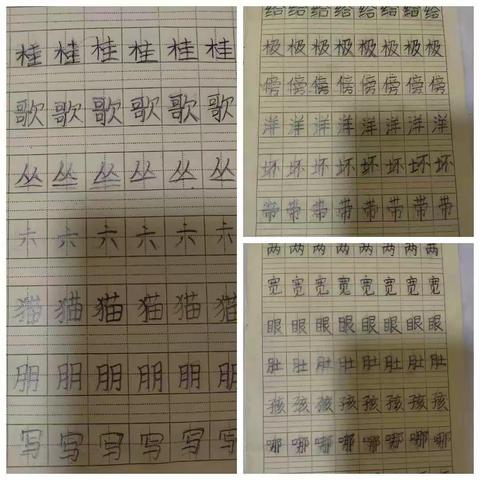 桂桂桂桂桂桂
歌歌歌歌歌歌
丛丛丛丛丛丛
六六六六六六
猫猫猫猫猫猫
朋朋朋朋朋朋
写写写写写写
给给给给给给给给
极极极极极极极极
傍傍傍傍傍傍傍傍
洋洋洋洋洋洋洋洋
坏坏坏坏坏坏坏坏
带带带带带带带带
两两两两两两两两
宽宽宽宽宽宽宽宽
眼眼眼眼眼眼眼眼
肚肚肚肚肚肚肚肚
孩孩孩孩孩孩孩孩
哪哪哪哪哪哪哪哪